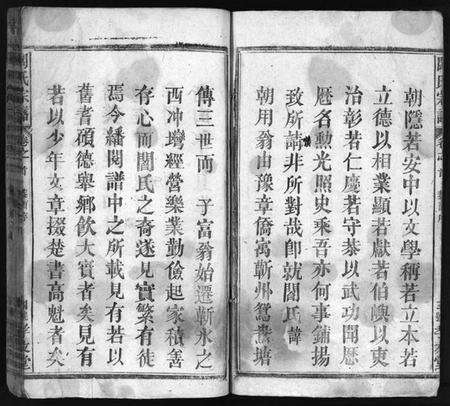 朝隱若安中以文學稱若立本若
立德以相業顯若獻若伯嶼以東
治彰若仁廣若守恭以武功聞歷
歷名勳光照史乘吾亦何事鋪揚
致所請非所對哉卽就閻氏諱
朝用翁由豫章僑寓蘄州鴛鴦塘
傳三世而 子富翁始遷蘄水之
西冲灣經營樂業勤儉起家積善
存心而閻氏之裔遂見實繁有徒
焉今繙閱譜中之所載見有若以
舊耆碩德舉鄉飲大賓者矣見有
若以少年文章掇楚書高魁者矣